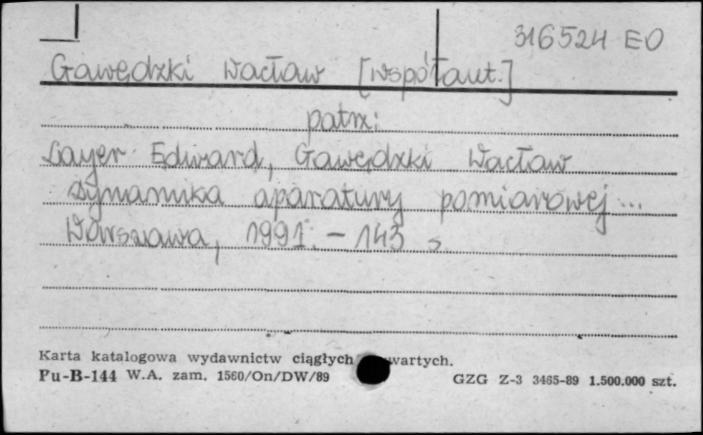 316524 EO
Gawędzki Wacław [współaut.]
patrz:
Layer Edward, Gawędzki Wacław
Dynamika aparatury pomiarowej...
Warszawa, 1991. - 143 s.
Karta katalogowa wydawnictw ciągłych wartych.
Pu-B-144 W.A. zam. 1560/On/DW/89
GZG Z-3 3465-89 1.500.000 szt.